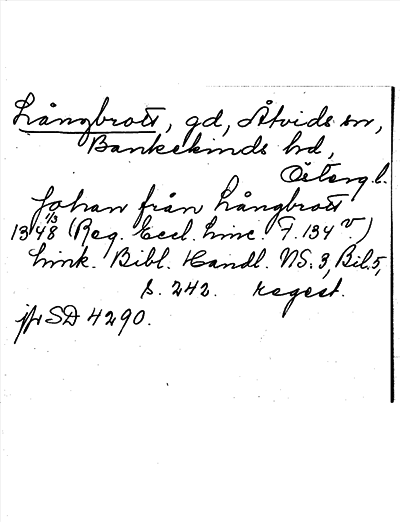 Långbrott, gd, Åtvids sn,
Bankekinds hd,
Östergl.
Johan från Långbrott
1348 1/3 (Reg. Eccl. Linc. F. 134 v.)
Link. Bibl. Handl. NS. 3, Bil. 5,
s. 242. regest.
jfr SD 4290.